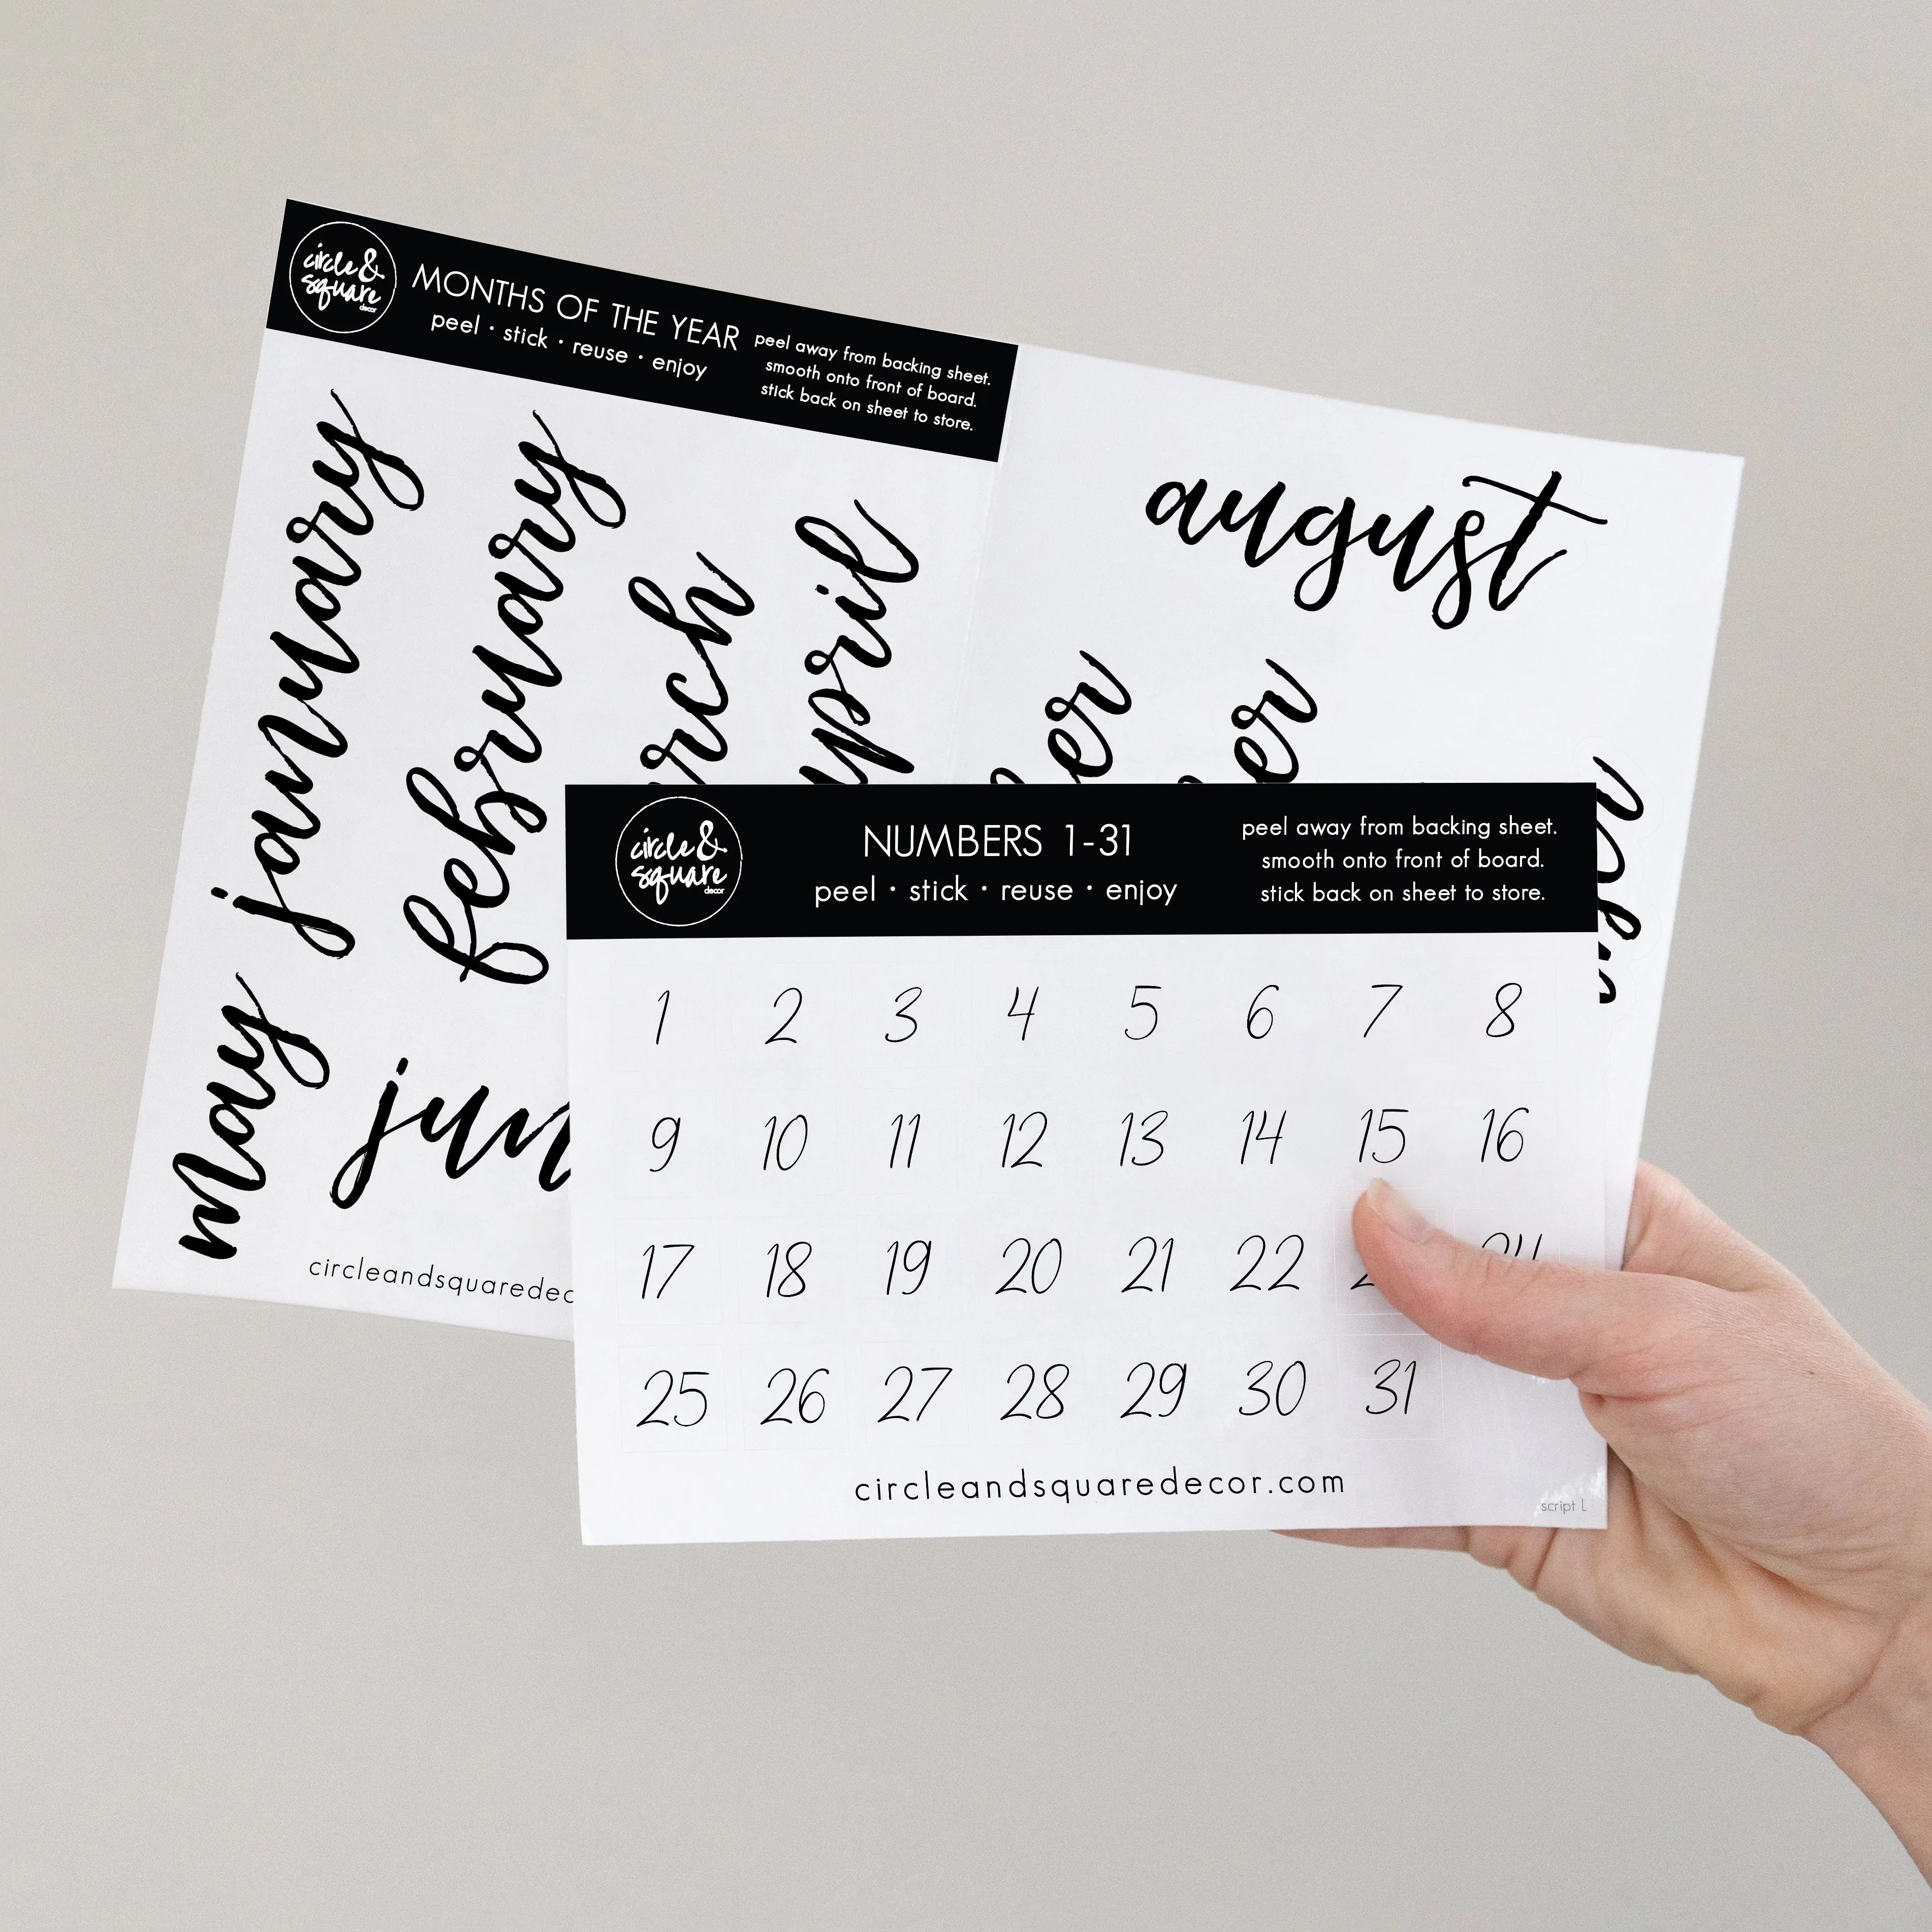 circle &
square
decor
MONTHS OF THE YEAR
peel • stick • reuse • enjoy
peel away from backing sheet.
smooth onto front of board.
stick back on sheet to store.
january
february
rch
april
may
jun
august
er
er
circleandsquaredec
circle &
square
decor
NUMBERS 1-31
peel • stick • reuse • enjoy
peel away from backing sheet.
smooth onto front of board.
stick back on sheet to store.
1 2 3 4 5 6 7 8
9 10 11 12 13 14 15 16
17 18 19 20 21 22 24
25 26 27 28 29 30 31
circleandsquaredecor.com
script L